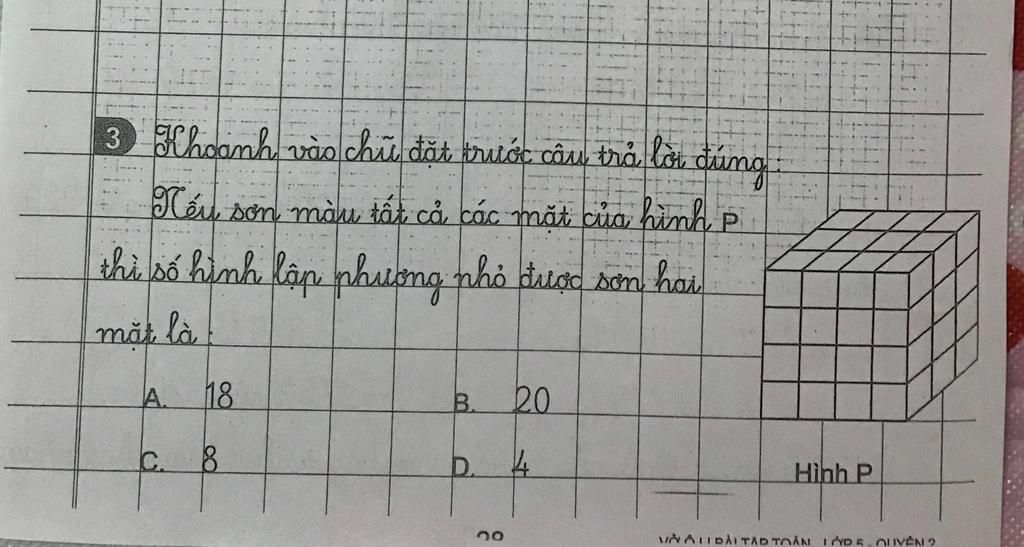 3 Khoanh vào chữ đặt trước câu trả lời đúng :
Nếu sơn màu tất cả các mặt của hình P
thì số hình lập phương nhỏ được sơn hai
mặt là :
A. 18 B. 20
C. 8 D. 4
Hình P